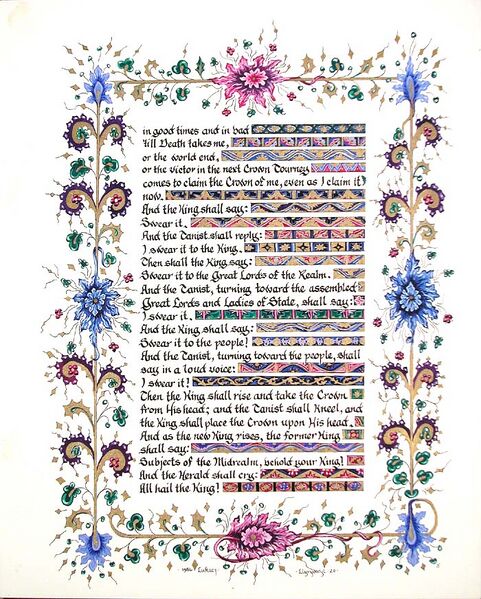 in good times and in bad
till Death takes me,
or the world end,
or the victor in the next Crown Tourney
comes to claim the Crown of me, even as I claim it
now.
And the King shall say:
Swear it.
And the Tanist shall reply:
I swear it to the King.
Then shall the King say:
Swear it to the Great Lords of the Realm.
And the Tanist, turning toward the assembled
Great Lords and Ladies of State, shall say:
I swear it.
And the King shall say:
Swear it to the people!
And the Tanist, turning toward the people, shall
say in a loud voice:
I swear it!
Then the King shall rise and take the Crown
from His head; and the Tanist shall Kneel, and
the King shall place the Crown upon His head.
And as the new King rises, the former King
shall say:
Subjects of the Midrealm, behold your King!
And the Herald shall cry:
All hail the King!